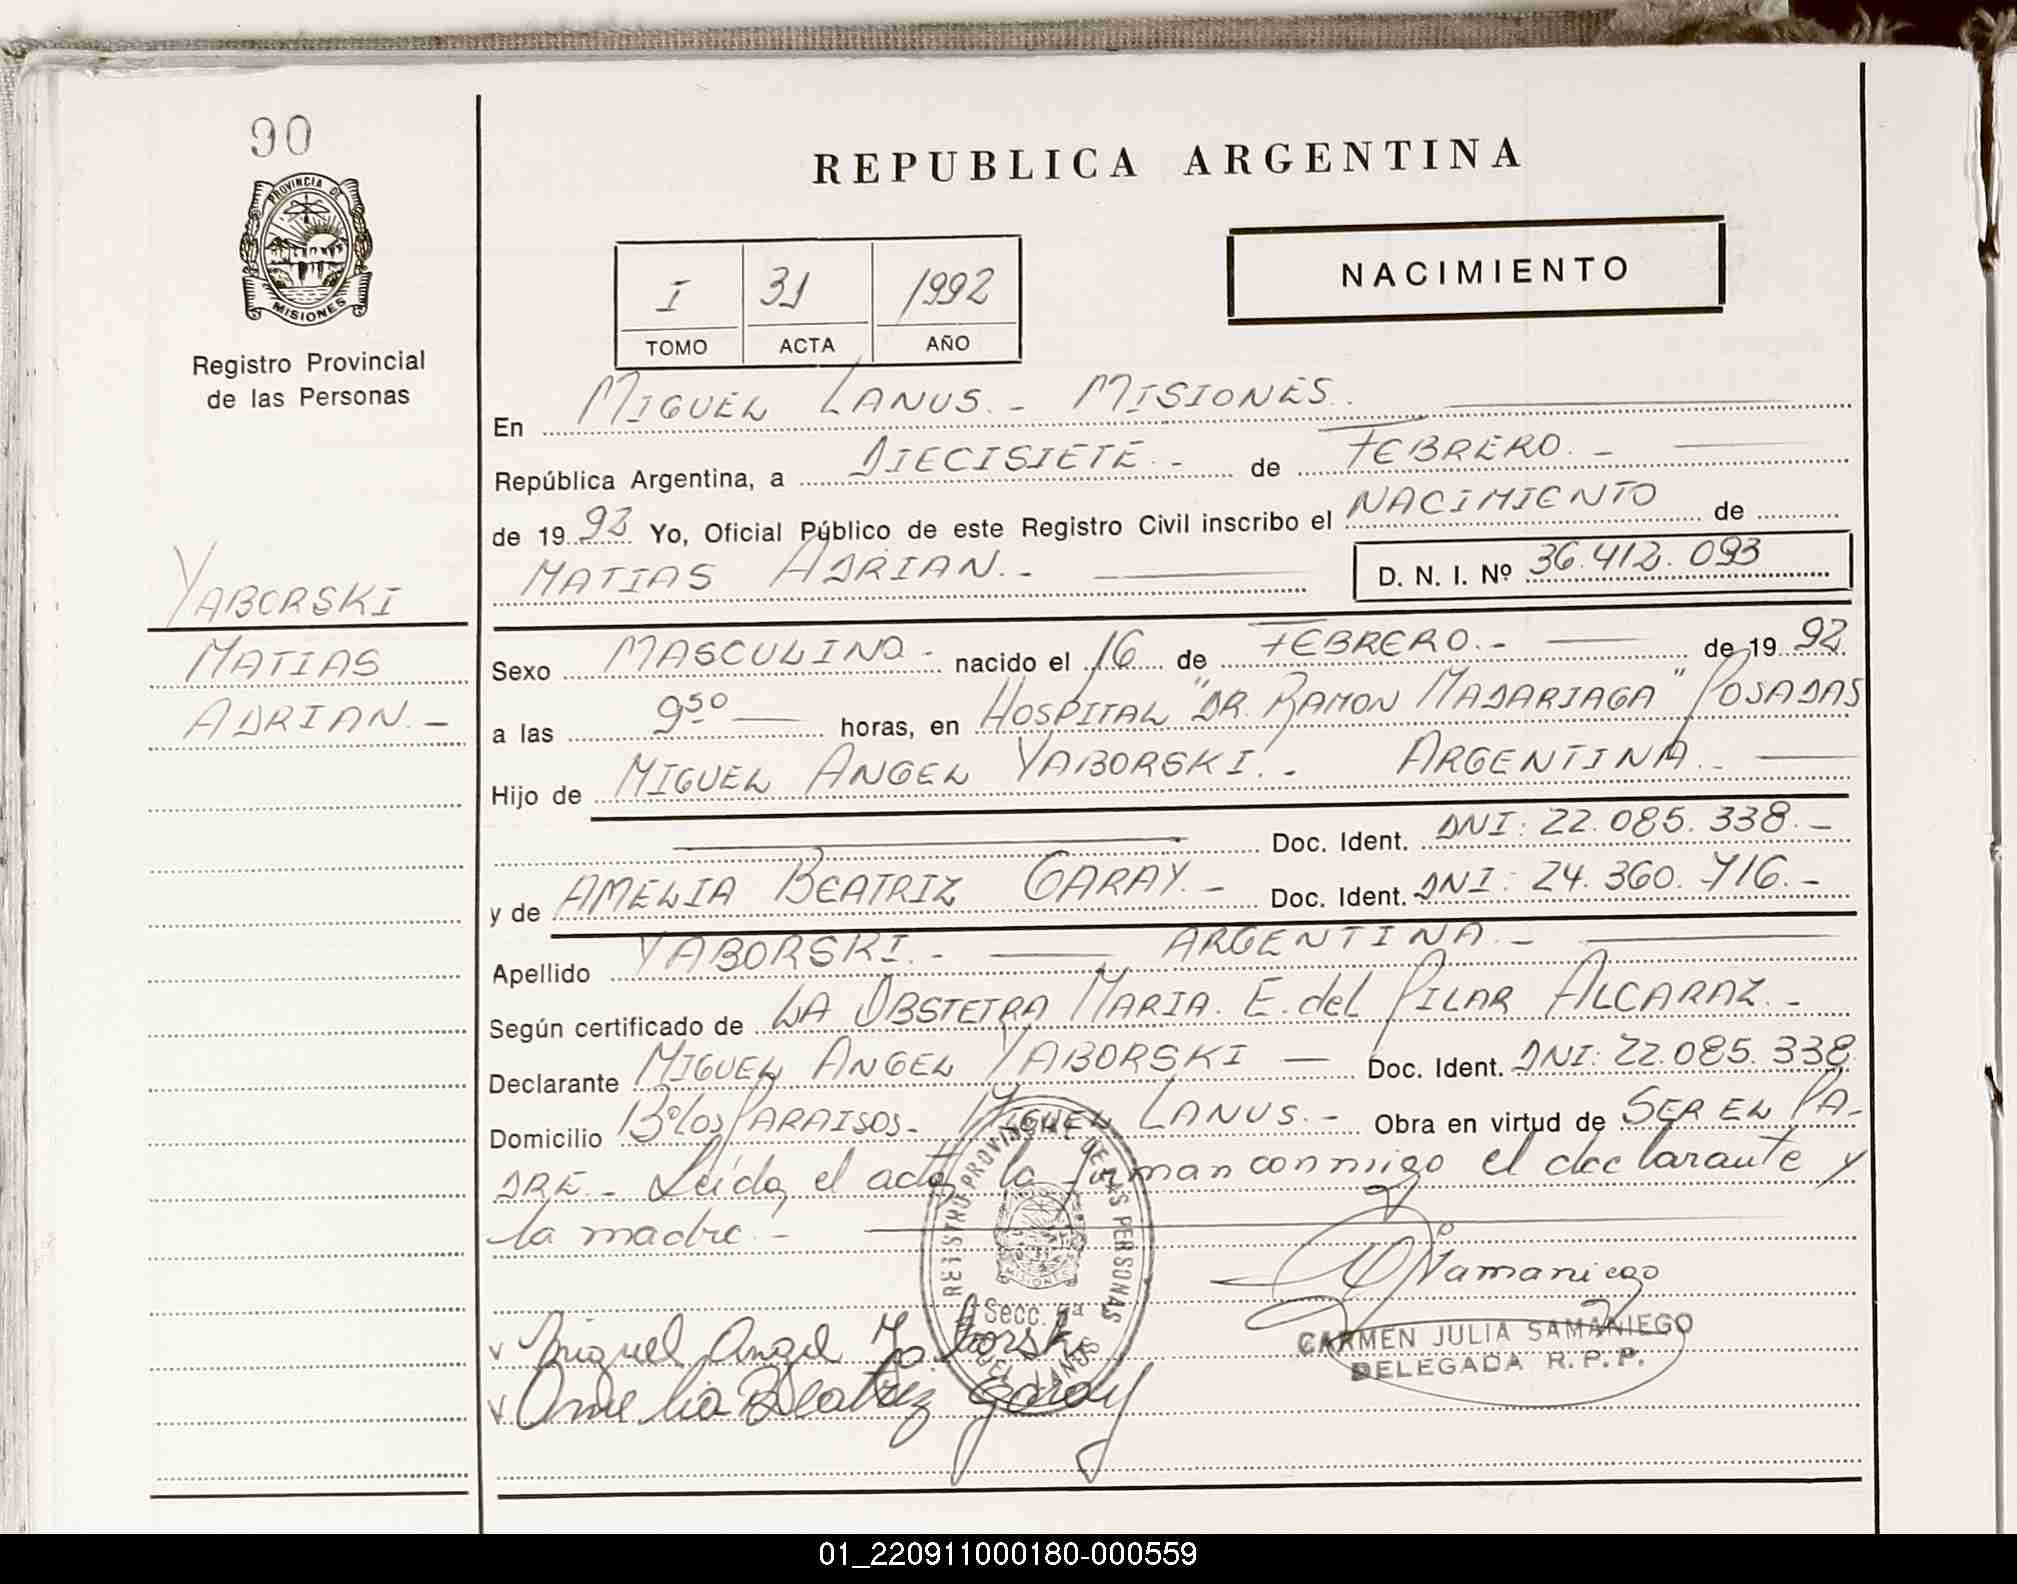 90
PROVINCIA DE
MISIONES
Registro Provincial
de las Personas
YABORSKI
MATIAS
ADRIAN.-
REPUBLICA ARGENTINA
I 31 1992
TOMO ACTA AÑO
NACIMIENTO
En MIGUEL LANUS.- MISIONES.
República Argentina, a DIECISIETE.- de FEBRERO.-
de 1992 Yo, Oficial Público de este Registro Civil inscribo el NACIMIENTO de
MATIAS ADRIAN.- D. N. I. Nº 36.412.093
Sexo MASCULINO.- nacido el 16 de FEBRERO.- de 1992
a las 9 50 horas, en HOSPITAL "DR. RAMON MADARIAGA" POSADAS
Hijo de MIGUEL ANGEL YABORSKI.- ARGENTINA.-
Doc. Ident. DNI: 22.085.338.-
y de AMELIA BEATRIZ GARAY.- Doc. Ident. DNI: 24.360.716.-
Apellido YABORSKI.- ARGENTINA.-
Según certificado de LA OBSTETRA MARIA. E. del PILAR ALCARAZ.-
Declarante MIGUEL ANGEL YABORSKI — Doc. Ident. DNI: 22.085.338
Domicilio Bº LOS PARAISOS- MIGUEL LANUS.- Obra en virtud de SER EL PA-
DRE.- Leída, el acta la firman conmigo el declarante y
la madre.-
REGISTRO PROVINCIAL DE LAS PERSONAS
Secc.
MIGUEL LANUS
Samaniego
CARMEN JULIA SAMANIEGO
DELEGADA R.P.P.
Miguel Angel Yaborski
Amelia Beatriz Garay
01_220911000180-000559